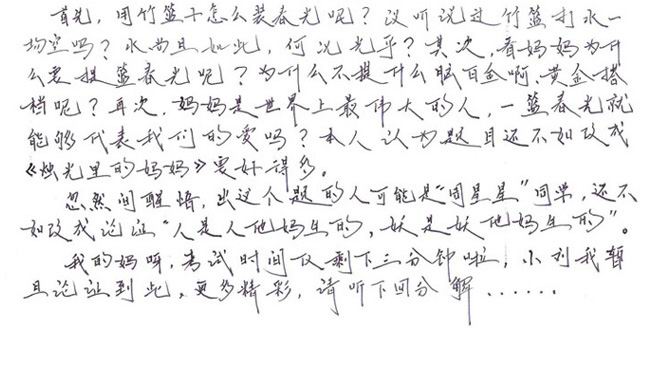 首先，用竹篮子怎么装春光呢？没听说过竹篮打水一
场空吗？水尚且如此，何况光乎？其次，看妈妈为什
么要提篮春光呢？为什么不提什么脑白金啊、黄金搭
档呢？再次，妈妈是世界上最伟大的人，一篮春光就
能够代表我们的爱吗？本人认为题目还不如改成
《烛光里的妈妈》要好得多。
忽然间醒悟，出这个题的人可能是“周星星”同学，还不
如改成论证“人是人他妈生的，妖是妖他妈生的”。
我的妈呀，考试时间仅剩下三分钟啦，小刘我暂
且论证到此，更多精彩，请听下回分解……